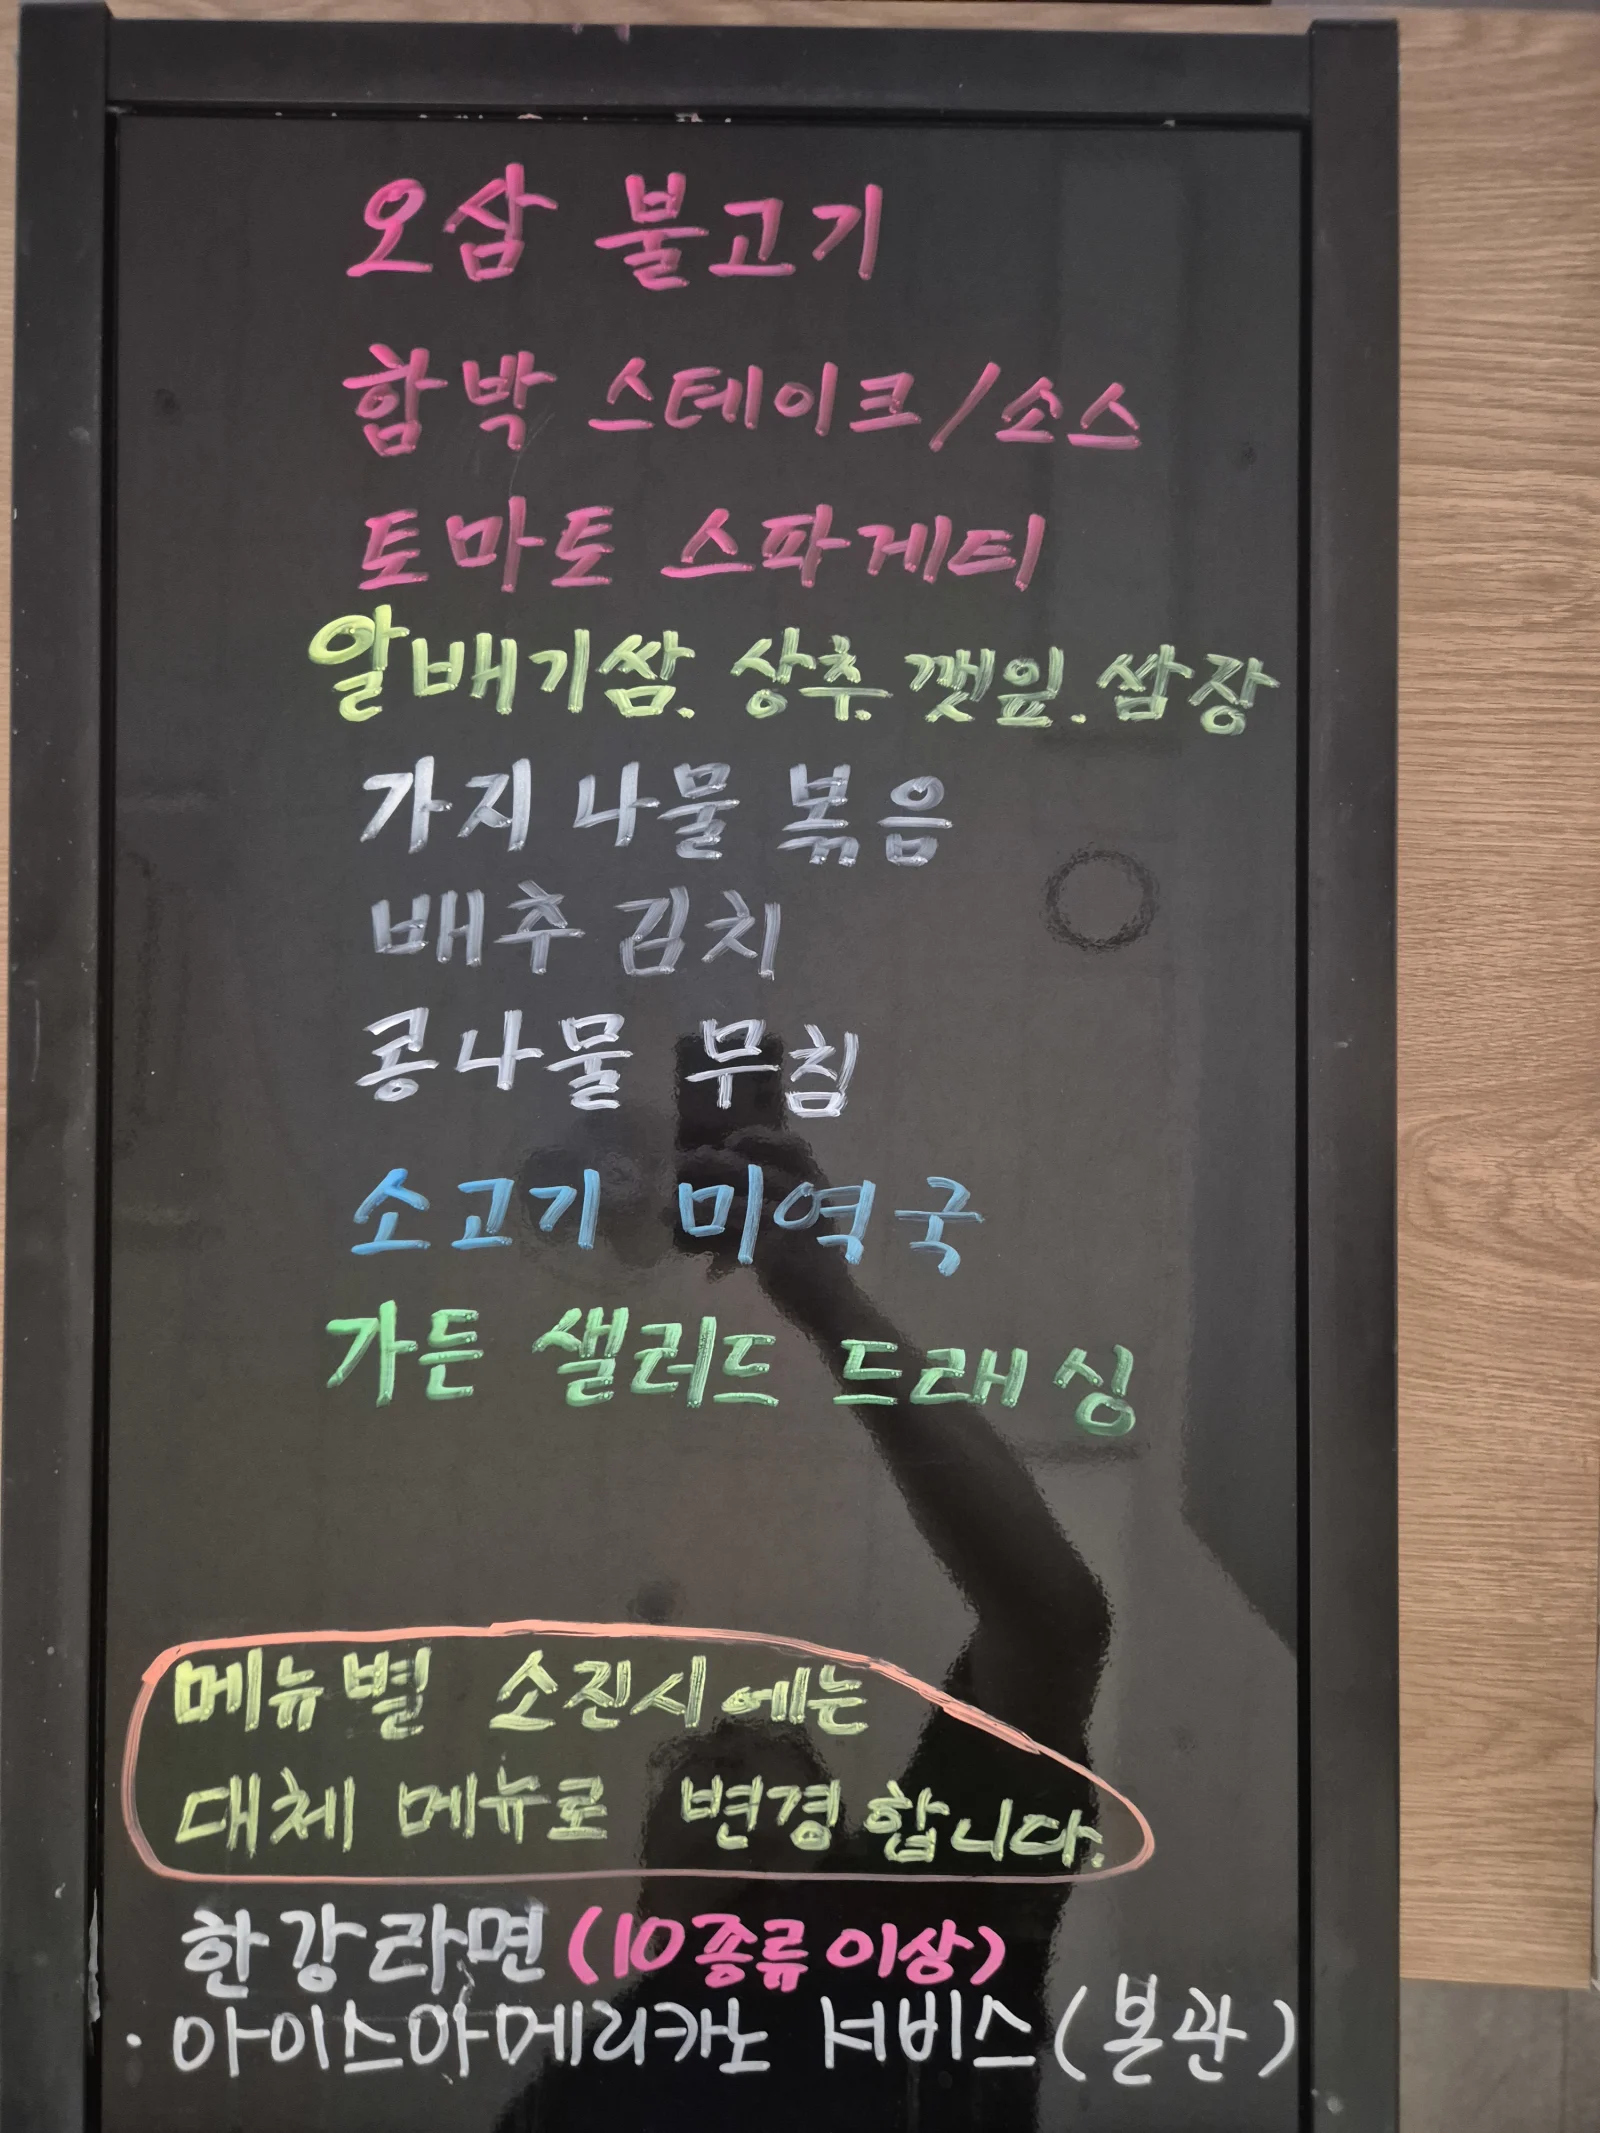 오삼 불고기
함박 스테이크/소스
토마토 스파게티
알배기쌈. 상추. 깻잎. 쌈장
가지 나물 볶음
배추 김치
콩나물 무침
소고기 미역국
가든 샐러드 드래싱
메뉴별 소진시에는
대체 메뉴로 변경합니다.
한강라면 (10종류이상)
· 아이스아메리카노 서비스 (본관)